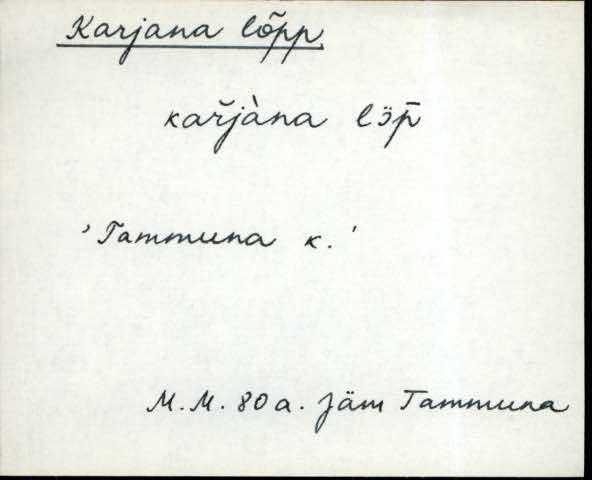 Karjana lõpp
kařjàna lɔ̈p̄
'Tammuna k.'
M.M. 80 a. Jäm Tammuna